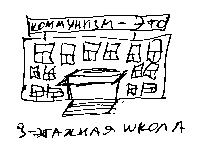 КОММУНИЗМ - ЭТО
3-ЭТАЖНАЯ ШКОЛА